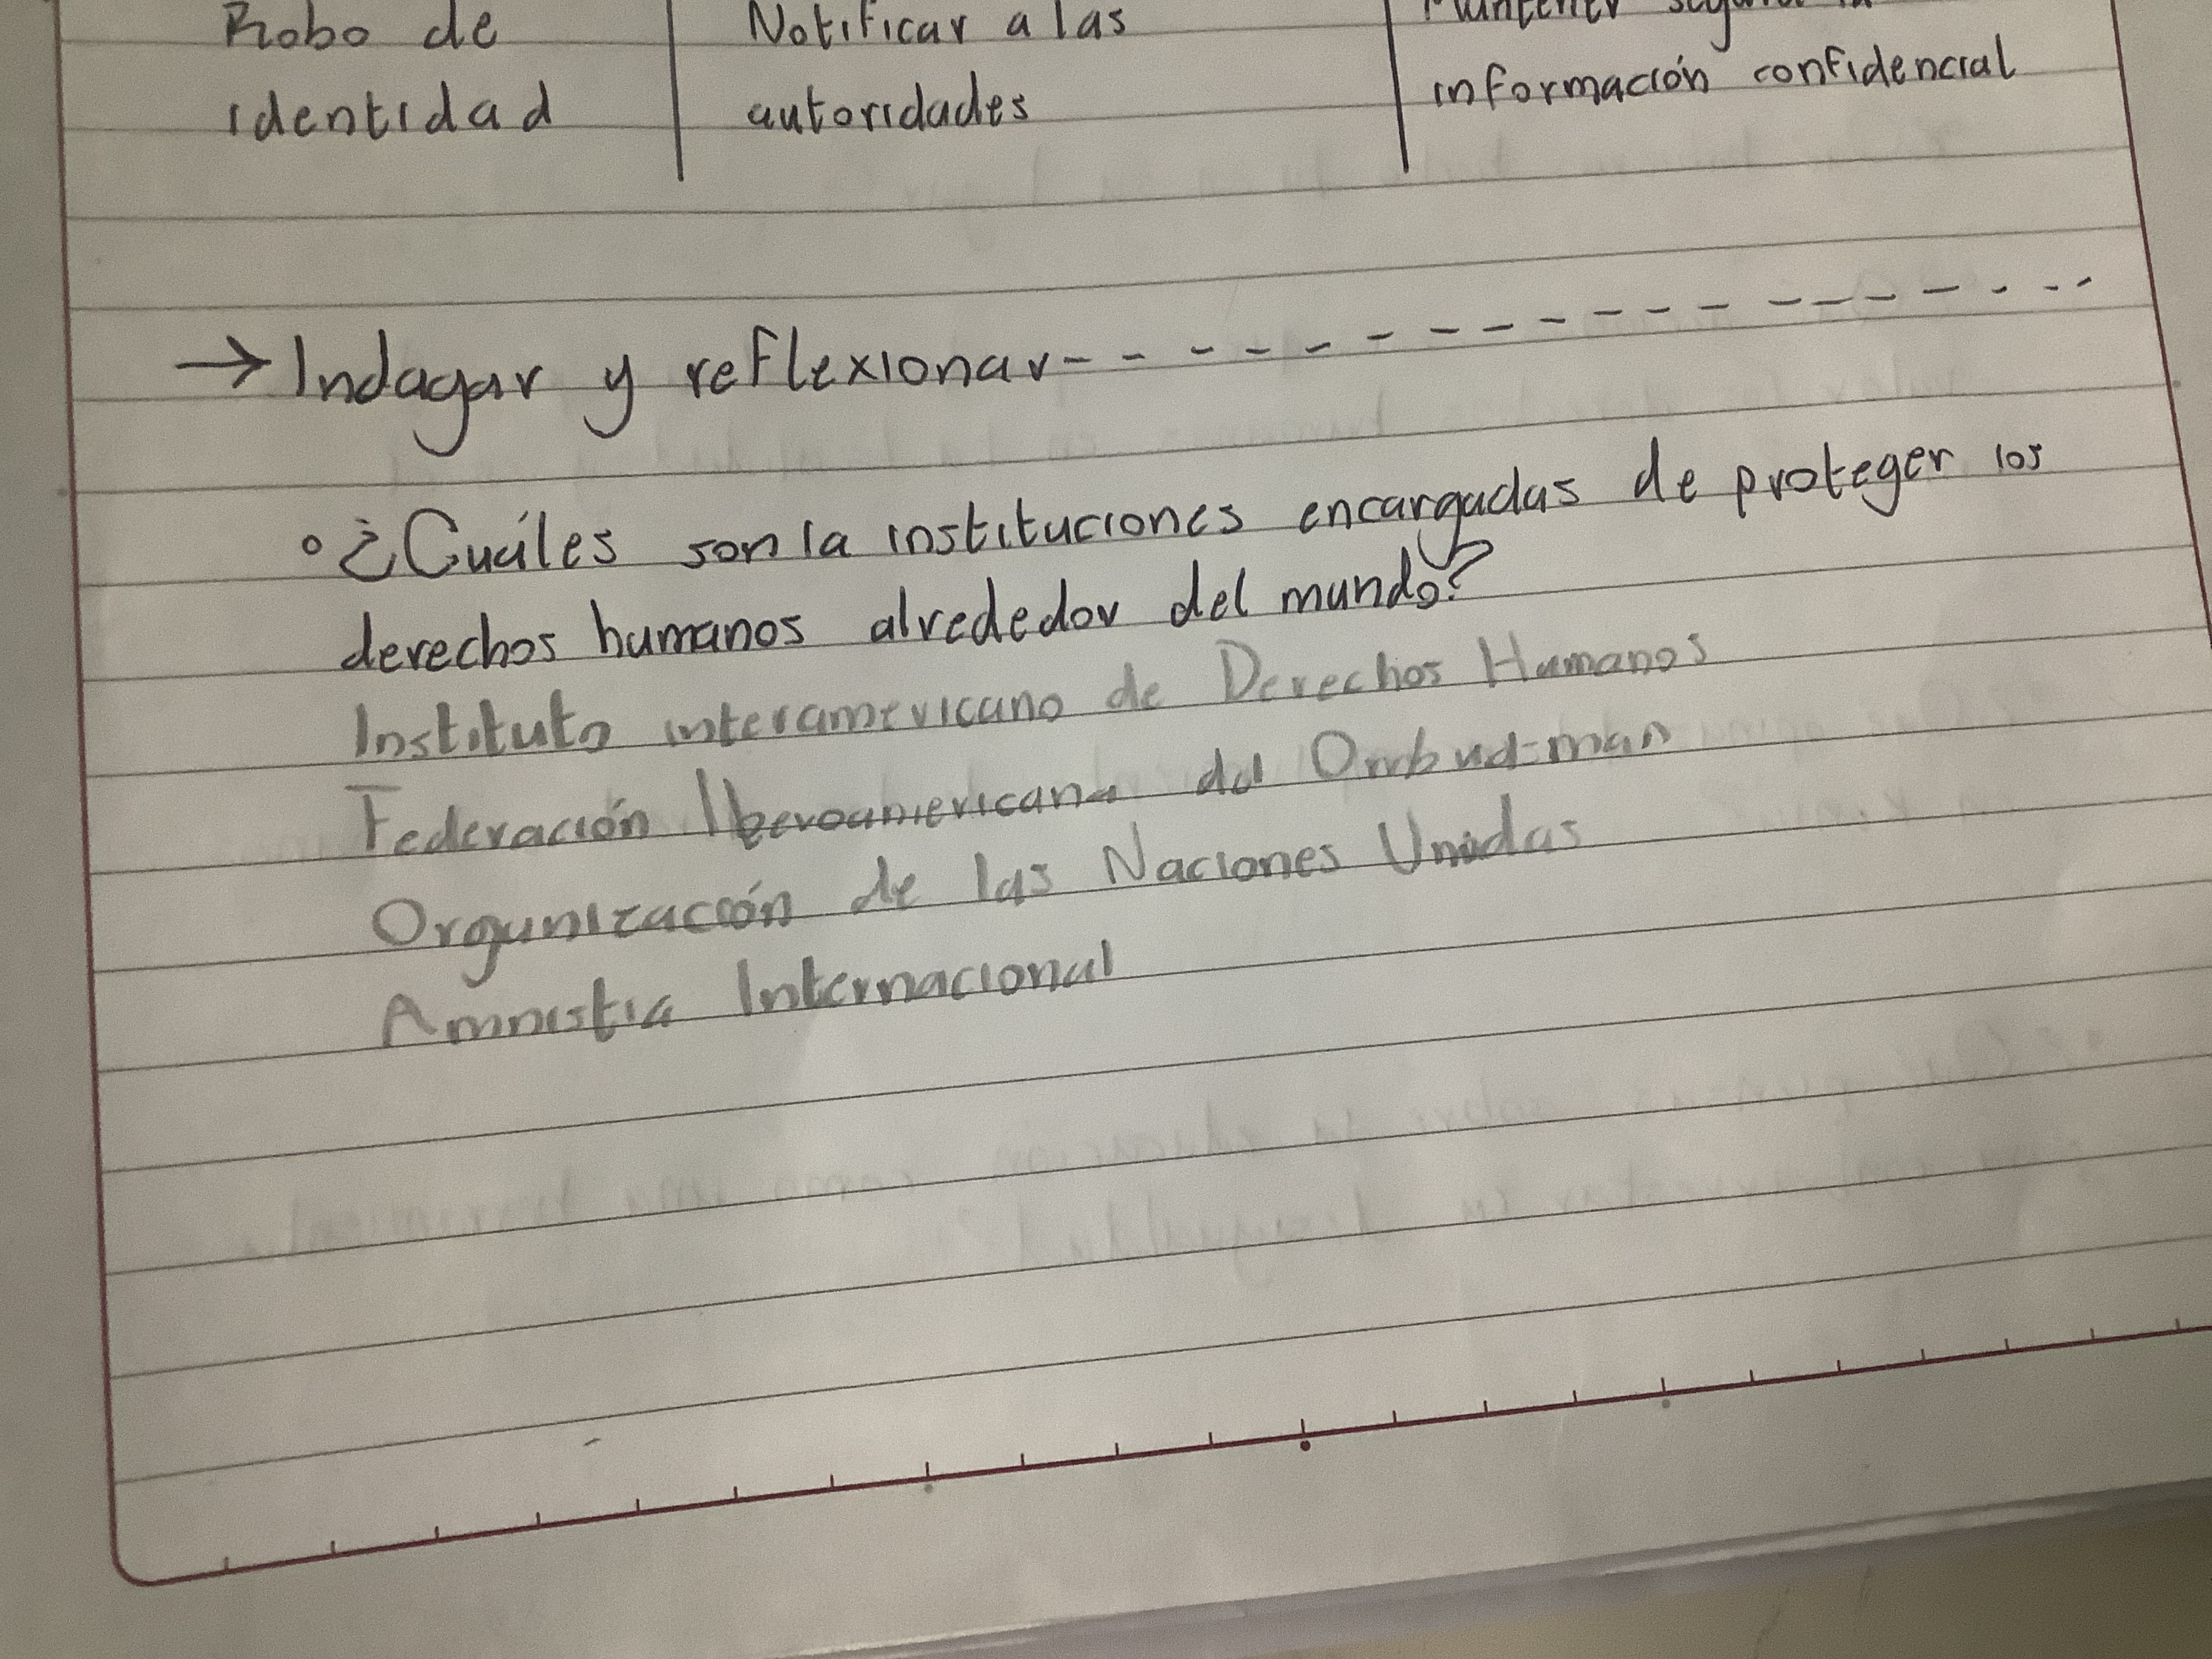 Robo de
identidad
Notificar a las
autoridades
Mantener segura la
información confidencial
→ Indagar y reflexionar- - - - - - - - - - - - - - - - - - -
° ¿Cuáles son la instituciones encargadas de proteger los
derechos humanos alrededor del mundo?
Instituto interamericano de Derechos Humanos
Federación Iberoamericana del Ombud-man
Organización de las Naciones Unidas
Amnistia Internacional